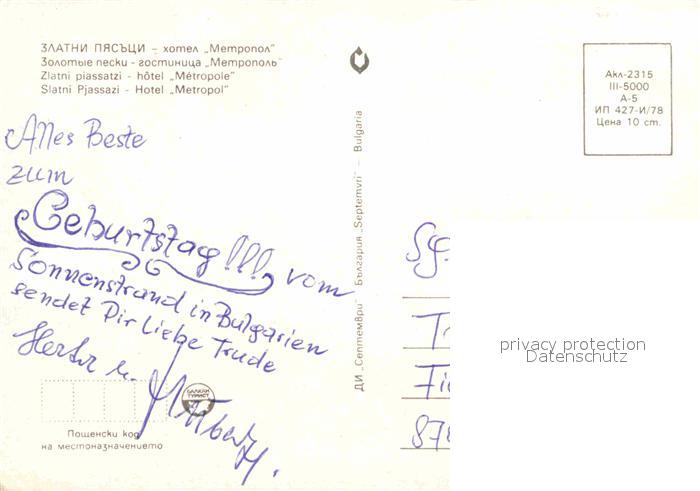 ЗЛАТНИ ПЯСЪЦИ – хотел „Метропол"
Золотые пески - гостиница „Метрополь"
Zlatni piassatzi - hôtel „Métropole"
Slatni Pjassazi - Hotel „Metropol"
Акл-2315
III-5000
А-5
ИП 427-И/78
Цена 10 ст.
Alles Beste
zum
Geburtstag!!! vom
Sonnenstrand in Bulgarien
sendet Dir liebe Trude
u.
БАЛКАН
ТУРИСТ
Пощенски код
на местоназначението
ДИ „Септември" България „Septemvri" – Bulgaria
privacy protection
Datenschutz